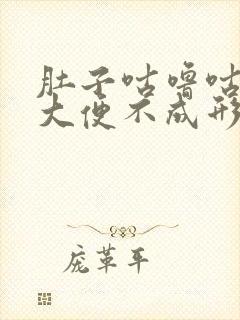 肚子咕噜咕
大便不成形
庞革平